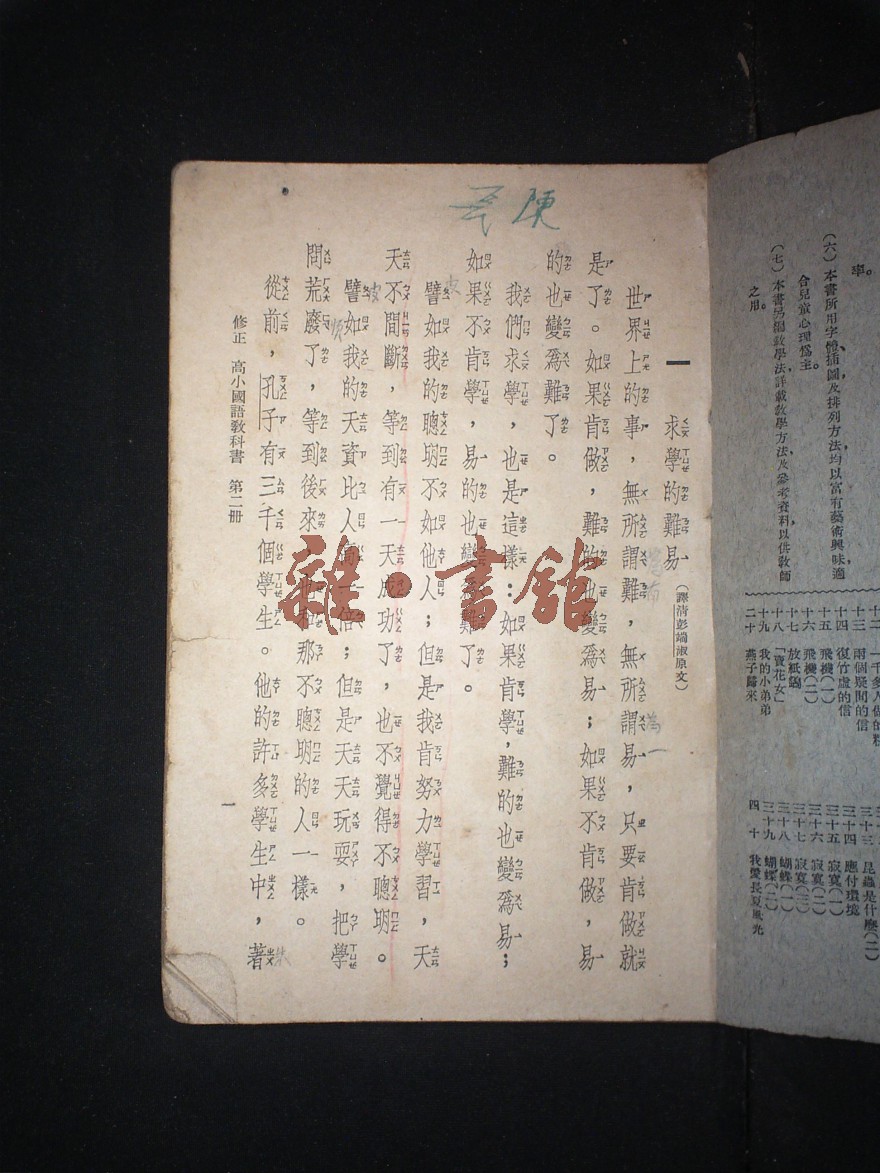 率。
（六）本書所用字體、插圖及排列方法，均以富有藝術興味，適
合兒童心理爲主。
（七）本書另編教學法，詳載教學方法，及參考資料，以供教師
之用。
十三　兩個疑問的信
十四　復竹虛的信
十五　飛機（一）
十六　飛機（二）
十七　放紙鷂
十八　「賣花女」
十九　我的小弟弟
二十　燕子歸來
三十三　昆蟲是什麼（二）
三十四　應付環境
三十五　寂寞（一）
三十六　寂寞（二）
三十七　寂寞（三）
三十八　蝴蝶（一）
三十九　蝴蝶（二）
四十　我愛長夏風光
陳
一　求學的難易（譯清彭端淑原文）
世界上的事，無所謂難，無所謂易，只要肯做就
是了。如果肯做，難的也變爲易；如果不肯做，易
的也變爲難了。
我們求學，也是這樣：如果肯學，難的也變爲易；
如果不肯學，易的也變爲難了。
譬如我的聰明不如他人；但是我肯努力學習，天
天不間斷，等到有一天成功了，也不覺得不聰明。
譬如我的天資比人備一倍；但是天天玩耍，把學
問荒廢了，等到後來，也和那不聰明的人一樣。
從前，孔子有三千個學生。他的許多學生中，著
修正　高小國語教科書　第二冊
一
雜·書館